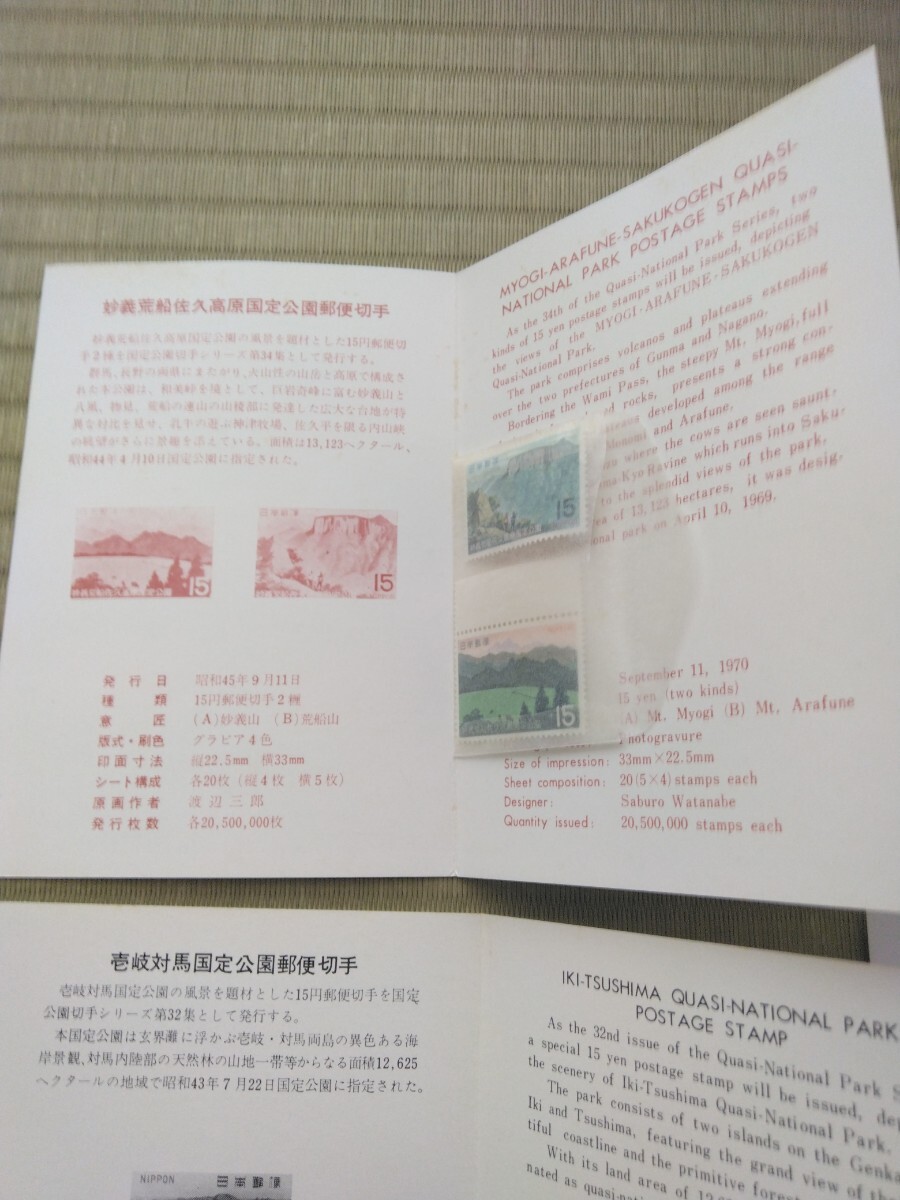 妙義荒船佐久高原国定公園郵便切手
妙義荒船佐久高原国定公園の風景を題材とした15円郵便切
手2種を国定公園切手シリーズ第34集として発行する。
群馬、長野の両県にまたがり、火山性の山岳と高原で構成さ
れた本公園は、和美峠を境として、巨岩奇峰に富む妙義山と
八風、物見、荒船の連山の山稜部に発達した広大な台地が特
異な対比を見せ、乳牛の遊ぶ神津牧場、佐久平を限る内山峡
の眺望がさらに景趣を添えている。面積は13,123ヘクタール、
昭和44年4月10日国定公園に指定された。
15
妙義荒船佐久高原国定公園
日本郵便
15
発行日 昭和45年9月11日
種類 15円郵便切手2種
意匠 (A)妙義山 (B)荒船山
版式・刷色 グラビア4色
印面寸法 縦22.5mm 横33mm
シート構成 各20枚(縦4枚 横5枚)
原画作者 渡辺三郎
発行枚数 各20,500,000枚
MYOGI-ARAFUNE-SAKUKOGEN QUASI-
NATIONAL PARK POSTAGE STAMPS
As the 34th of the Quasi-National Park Series, two
kinds of 15 yen postage stamps will be issued, depicting
the views of the MYOGI-ARAFUNE-SAKUKOGEN
Quasi-National Park.
The park comprises volcanos and plateaus extending
over the two prefectures of Gunma and Nagano.
Bordering the Wami Pass, the steepy Mt. Myogi, full
rocks, presents a strong con-
developed among the range
Monomi and Arafune.
where the cows are seen saunt-
Kyo Ravine which runs into Saku-
to the splendid views of the park.
of 13,123 hectares, it was desig-
national park on April 10, 1969.
日本郵便
15
日本郵便
15
September 11, 1970
15 yen (two kinds)
(A) Mt. Myogi (B) Mt. Arafune
Photogravure
Size of impression: 33mm×22.5mm
Sheet composition: 20(5×4)stamps each
Designer: Saburo Watanabe
Quantity issued: 20,500,000 stamps each
壱岐対馬国定公園郵便切手
壱岐対馬国定公園の風景を題材とした15円郵便切手を国定
公園切手シリーズ第32集として発行する。
本国定公園は玄界灘に浮かぶ壱岐・対馬両島の異色ある海
岸景観、対馬内陸部の天然林の山地一帯等からなる面積12,625
ヘクタールの地域で昭和43年7月22日国定公園に指定された。
NIPPON 日本郵便
IKI-TSUSHIMA QUASI-NATIONAL PARK
POSTAGE STAMP
As the 32nd issue of the Quasi-National Park S
a special 15 yen postage stamp will be issued, dep
the scenery of Iki-Tsushima Quasi-National Park.
The park consists of two islands on the Genka
Iki and Tsushima, featuring the grand view of the
tiful coastline and the primitive forest
With its land area of
nated as quasi-national